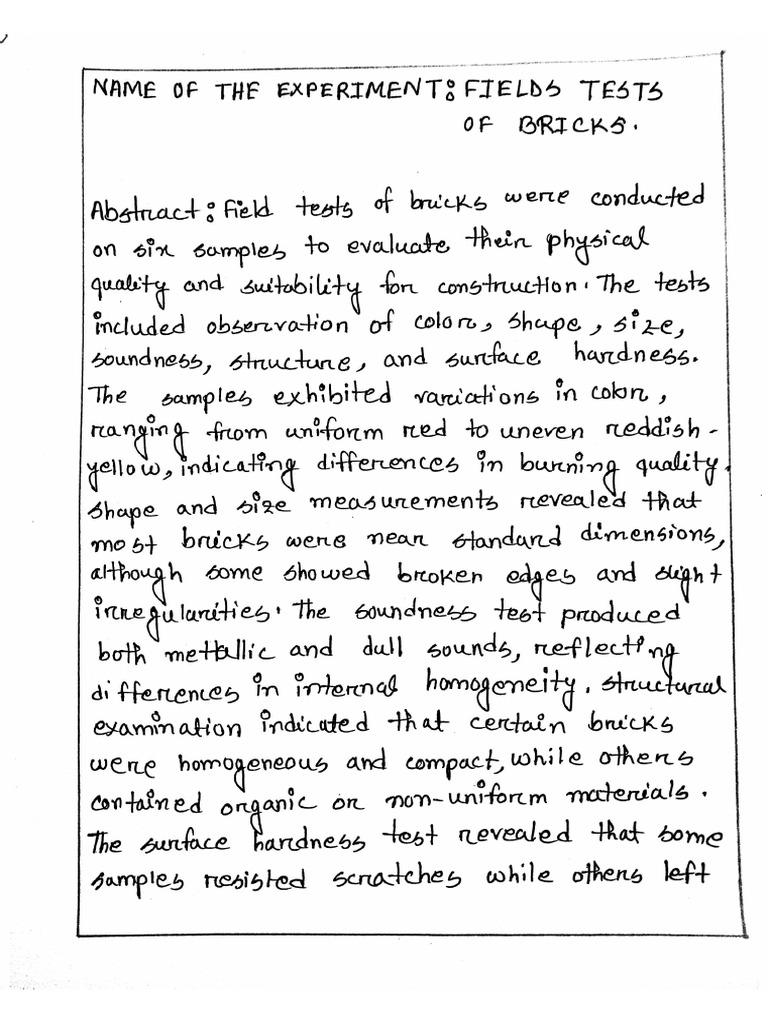 NAME OF THE EXPERIMENT: FIELDS TESTS
OF BRICKS.
Abstract: Field tests of bricks were conducted
on six samples to evaluate their physical
quality and suitability for construction. The tests
included observation of color, shape, size,
soundness, structure, and surface hardness.
The samples exhibited variations in color,
ranging from uniform red to uneven reddish-
yellow, indicating differences in burning quality.
Shape and size measurements revealed that
most bricks were near standard dimensions,
although some showed broken edges and slight
irregularities. The soundness test produced
both metallic and dull sounds, reflecting
differences in internal homogeneity. Structural
examination indicated that certain bricks
were homogeneous and compact, while others
contained organic or non-uniform materials.
The surface hardness test revealed that some
samples resisted scratches while others left